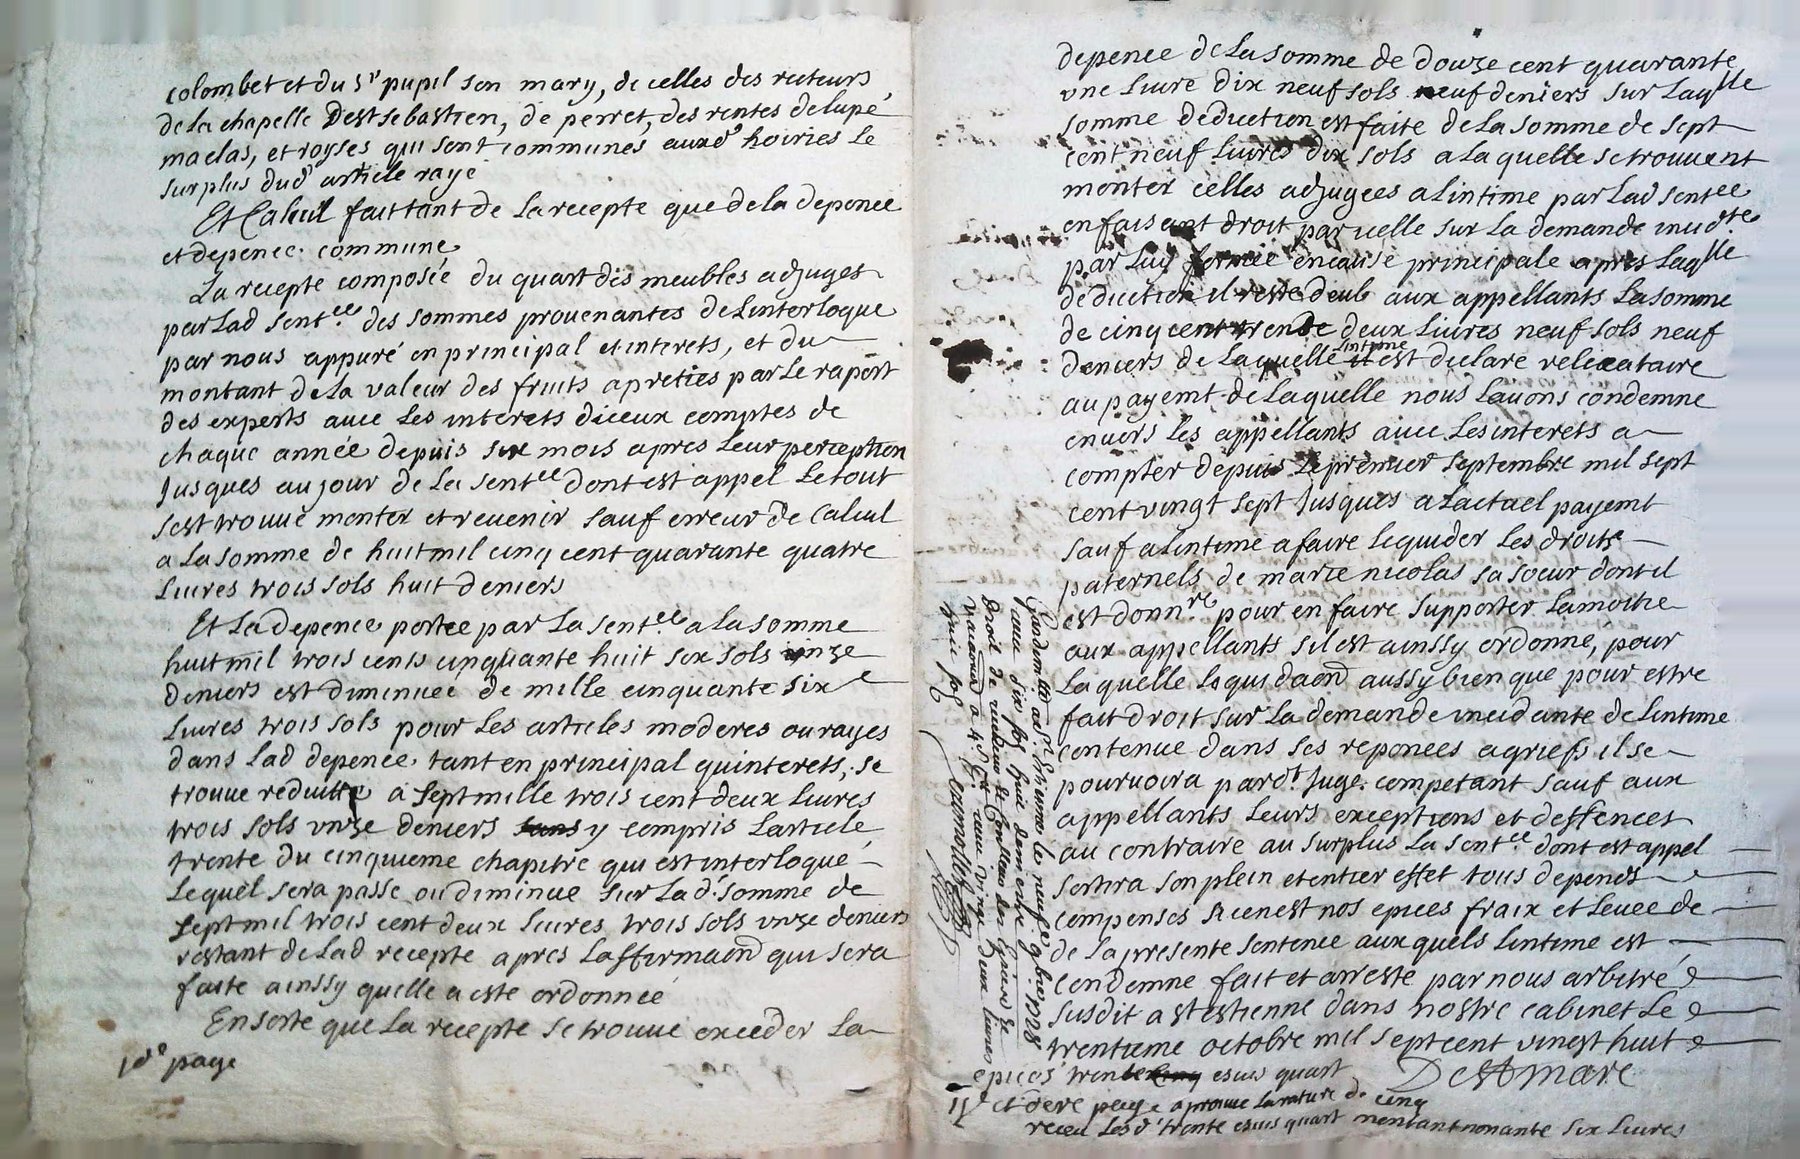 colombet et du Sr pupil son mary, de celles des recteurs
de la chapelle De st sebastien, de perret, des rentes de lupé
maclas, et royses qui sont communes auxd hoiries le
surplus dud article rayé
Et Calcul fait tant de la recepte que de la depence
et depence commune
La recepte composée du quart des meubles adjuges
par lad sentce des sommes prouenantes de linterloque
par nous appuré en principal et interets, et du
montant de la valeur des fruits apreties par le raport
des experts auec les interets diceux comptes de
chaque année depuis six mois apres leur perception
Jusques au jour de la sentce dont est appel le tout
sest trouué monter et reuenir sauf erreur de Calcul
a la somme de huit mil cinq cent quarante quatre
liures trois sols huit deniers
Et La depence portée par la sentce a la somme
huit mil trois cents cinquante huit six sols unze
deniers est diminuée de mille cinquante six
liures trois sols pour les articles moderes ou rayes
dans lad depence tant en principal quinterets, se
trouue reduitte a sept mille trois cent deux liures
trois sols unze deniers sans y compris larticle
trente du cinquieme chapitre qui est interloqué
lequel sera passé ou diminue sur la d. somme de
sept mil trois cent deux liures trois sols unze deniers
restant de lad recepte apres laffirmaon qui sera
faite ainssy quelle a este ordonnée
En sorte que la recepte se trouue exceder la
10e page
depence de la somme de douze cent quarante
une liure dix neuf sols neuf deniers sur laqlle
somme deduction est faite de la somme de sept
cent neuf liures dix sols a laquelle se trouuent
monter celles adjugees a lintime par lad sentce
en faisant droit par icelle sur la demande incidte
par luy formée en cause principale apres laqlle
deduction il reste deub aux appellants la somme
de cinq cent trente deux liures neuf sols neuf
lintime
deniers de laquelle il est declaré reliquataire
au payemt de laquelle nous lauons condemne
enuers les appellants auec les interets a
compter depuis le premier septembre mil sept
cent vingt sept Jusques a lactuel payemt
sauf a lintime a faire liquider les droits
paternels de marie nicolas sa soeur dont il
est donnre pour en faire supporter la moitie
aux appellants sil est ainssy ordonné, pour
laquelle liquidaon aussy bien que pour estre
fait droit sur la demande incidante de lintime
contenue dans ses reponces a griefs il se
pouruoira pard. Juge competant sauf aux
appellants leurs exceptions et deffences
au contraire au surplus la sentce dont est appel
sortira son plein et entier effet tous depends
compenses si ce nest nos epices fraix et leuée de
de la presente sentence aux quels lintime est
condemne fait et arresté par nous arbitre
susdit a st estienne dans nostre cabinet le
trentieme octobre mil sept cent vingt huit
epices trente cinq escus quart DeStmare
11e et dere page aprouue la rature de cinq
receu les d. trente escus quart montant nonante six liures
a St Etienne le neuf 9bre 1728